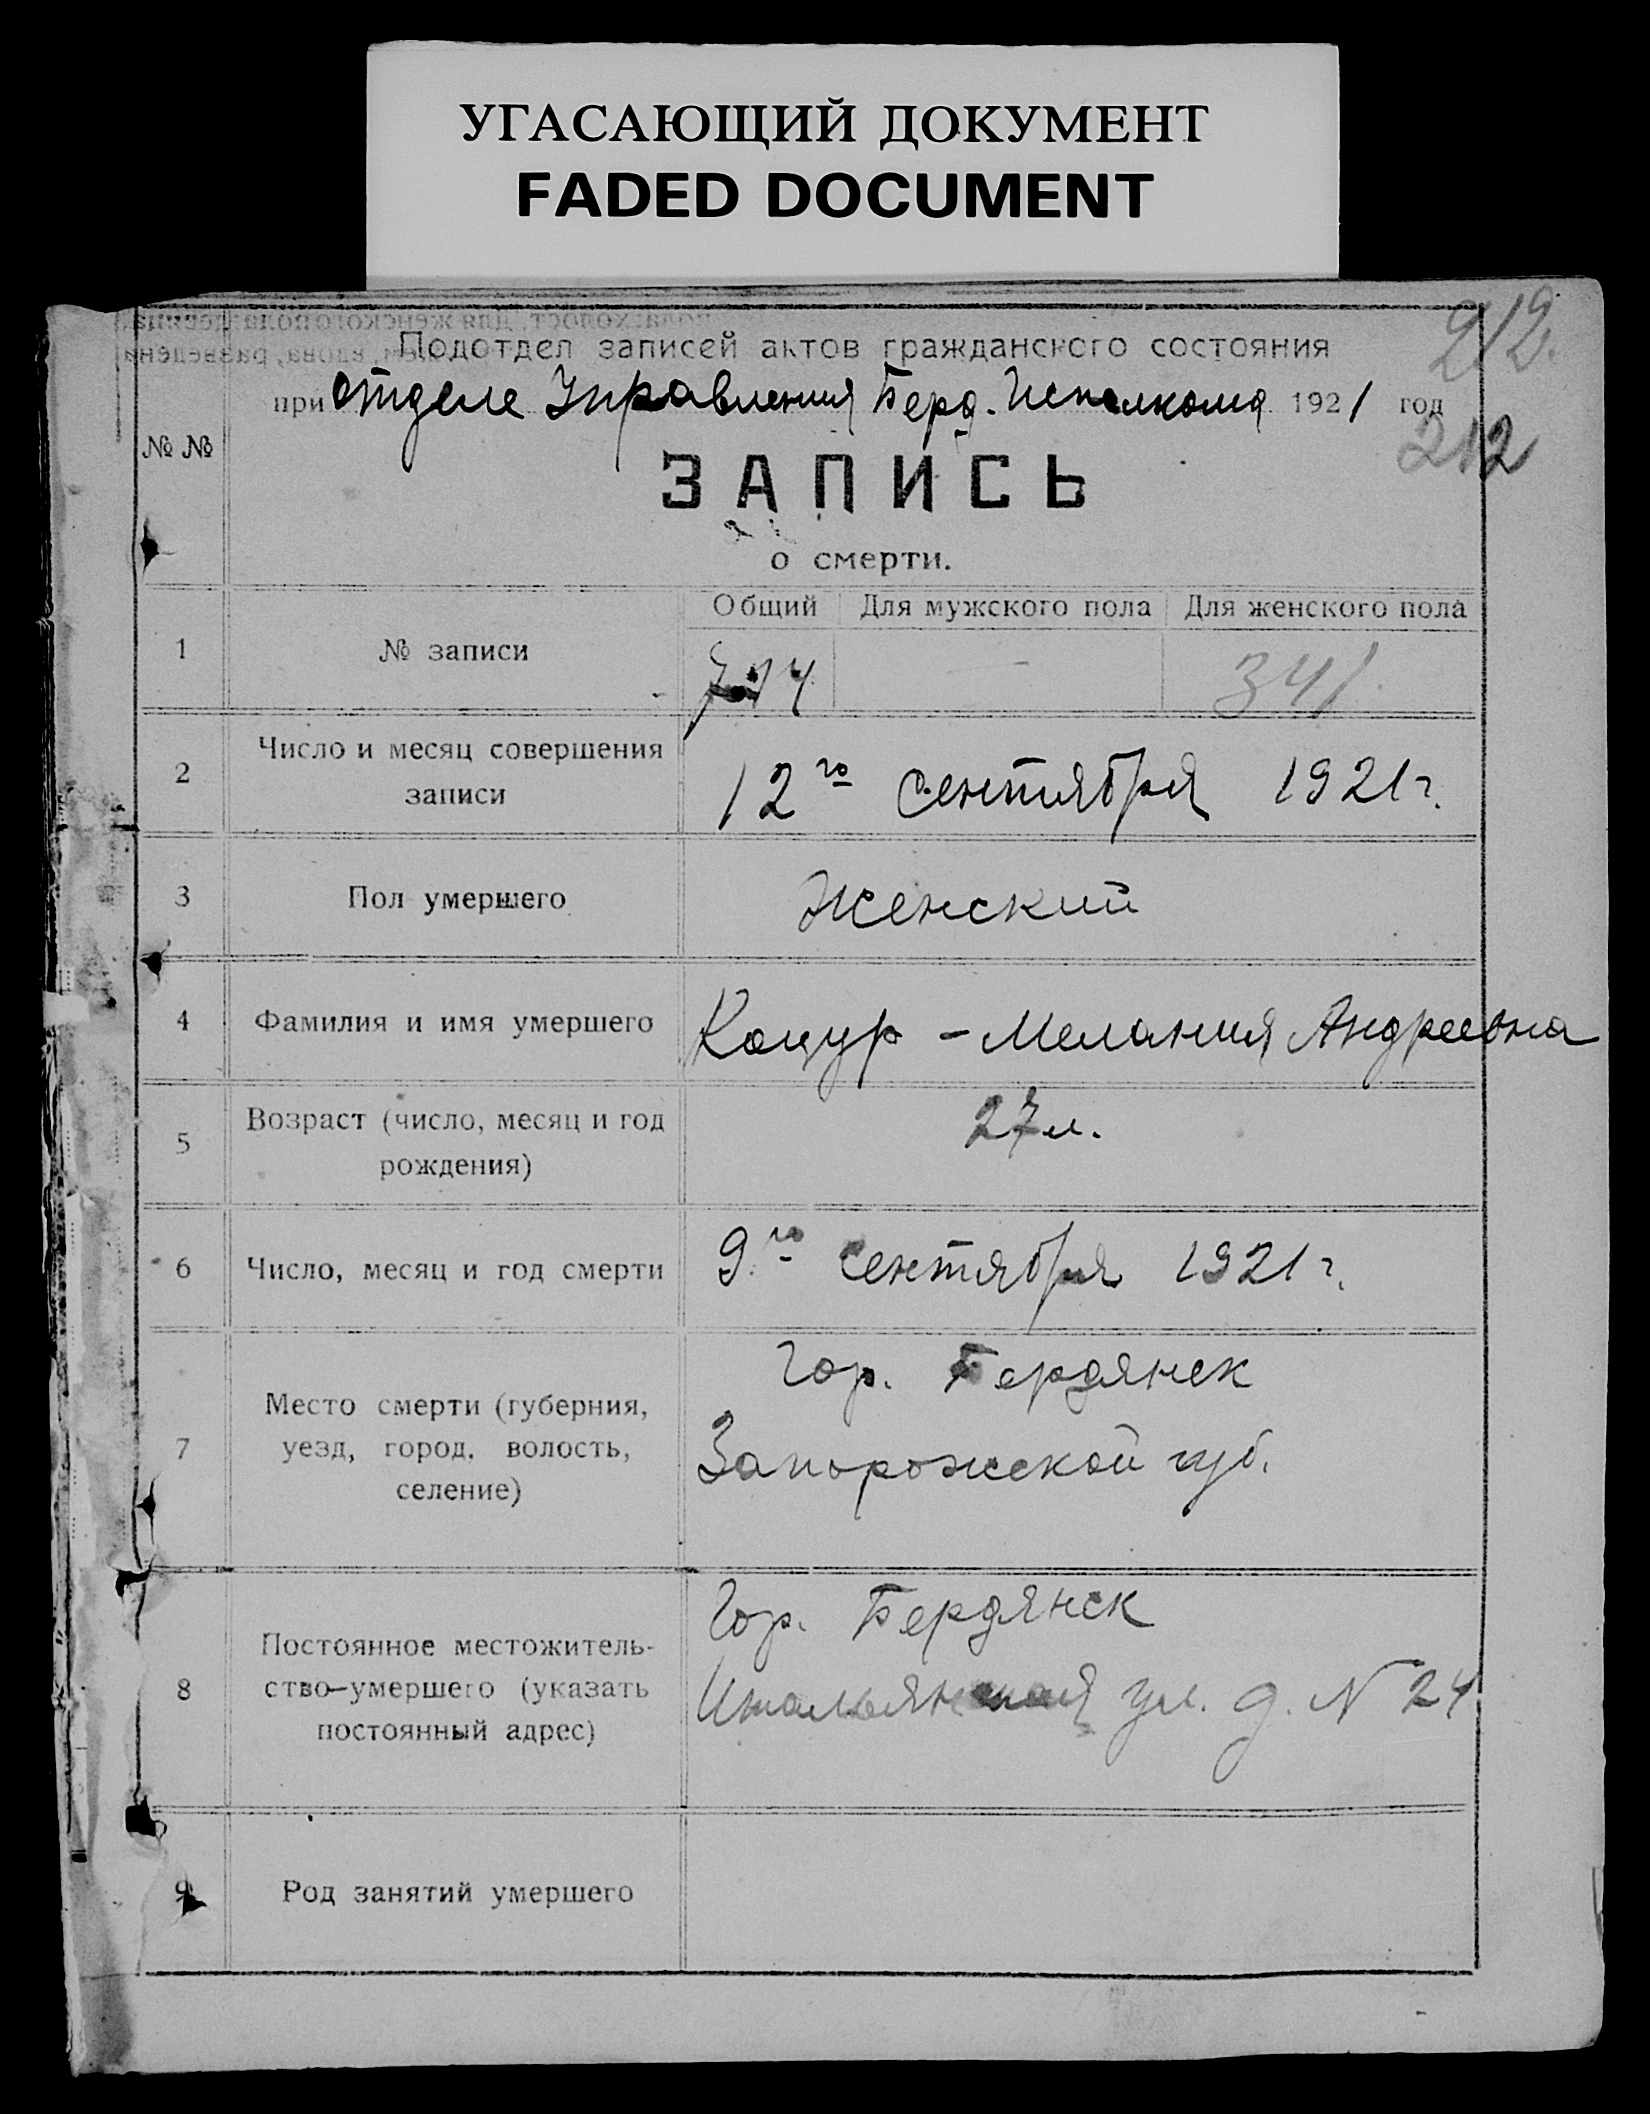 УГАСАЮЩИЙ ДОКУМЕНТ
FADED DOCUMENT
212.
Подотдел записей актов гражданского состояния
при отделе Управления Берд. Исполкома 1921 год
212
№ №
ЗАПИСЬ
о смерти.
Общий Для мужского пола Для женского пола
1 № записи 714 — 341.
2 Число и месяц совершения
записи
12го сентября 1921 г.
3 Пол умершего Женский
4 Фамилия и имя умершего Коцур - Мелания Андреевна
5 Возраст (число, месяц и год
рождения)
27 л.
6 Число, месяц и год смерти 9го сентября 1921 г.
7 Место смерти (губерния,
уезд, город, волость,
селение)
Гор. Бердянск
Запорожской губ.
8 Постоянное местожитель-
ство—умершего (указать
постоянный адрес)
Гор. Бердянск
Итальянская ул. д. N 24
9 Род занятий умершего